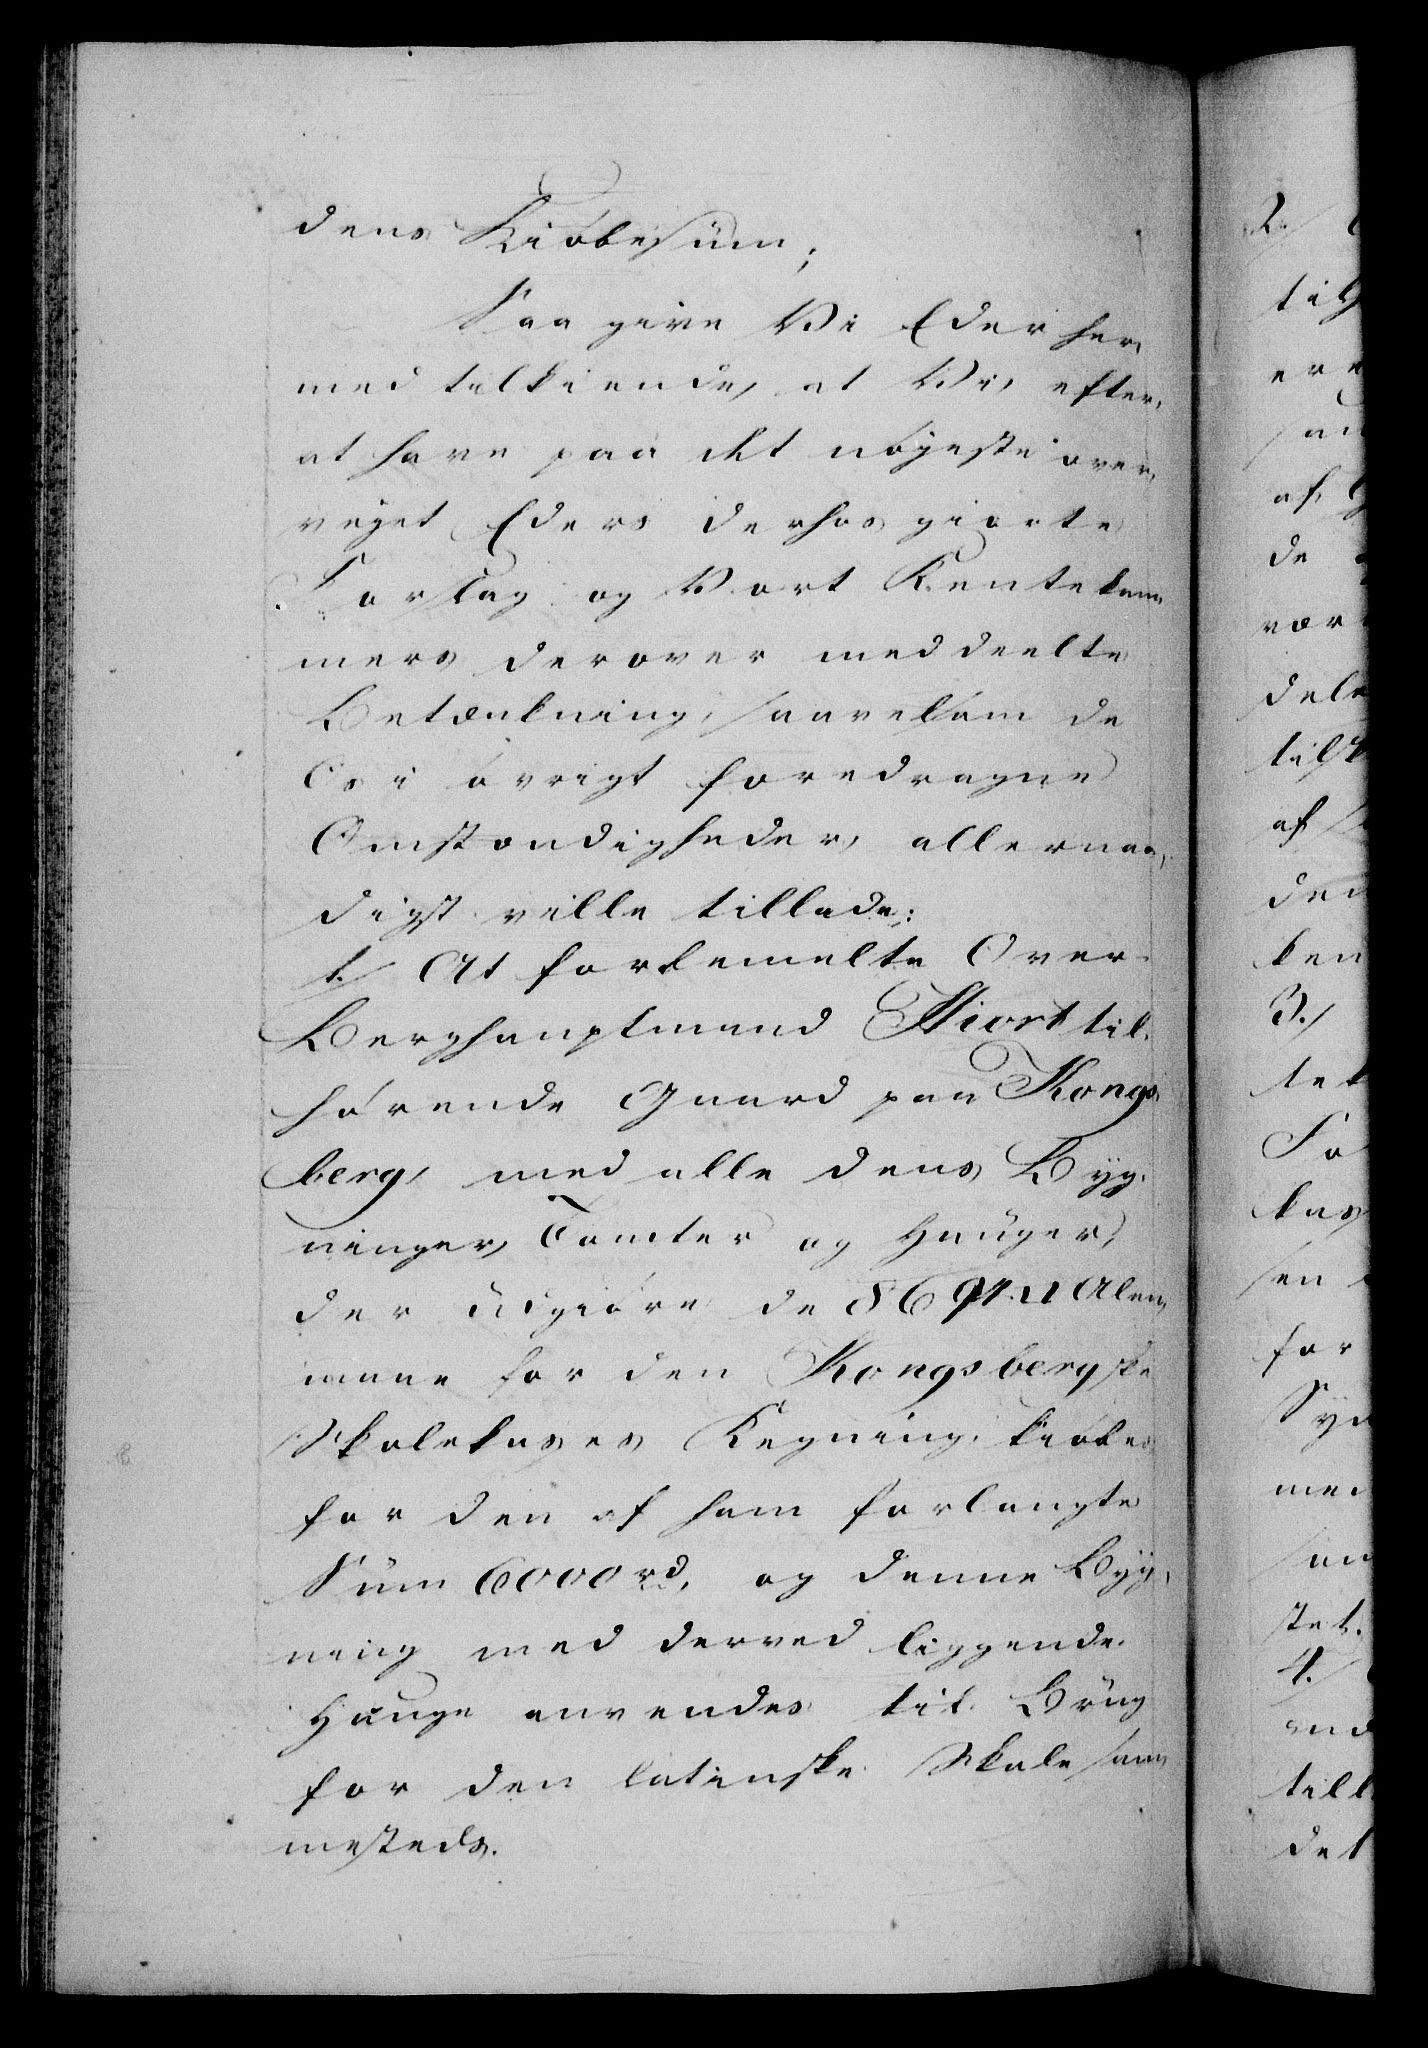 dens Kiöbesum;
Saa give Vi Eder her,
med tilkiende, at Vi, efter,
at have paa det nöyeste over,
veyet Eders derhos giorte
Forslag og Vort Rentekam,
mers derover meddeelte
Betænkning, saavelsom de
Os i övrigt foredragne
Omstændigheder, allernaa,
digst ville tillade:
1./ At forbemelte Over-
Berghauptmand Hiort til,
hörende Gaard paa Kongs,
berg, med alle dens Byg,
ninger, Tomter og Hauger,
der udgiöre de Alen,
maae for den Kongsbergske
Skolekasses Regning kiöbes
for den af ham forlangte
Sum 6000 rd, og denne Byg,
ning med derved liggende
Hauge anvendes til Brug
for den latinske Skole sam,
mesteds.
2./
til
ere
af
de
vær
dele
af
den
ken
3./
tet
kas
sen
for
med
stet.
4./
till
det